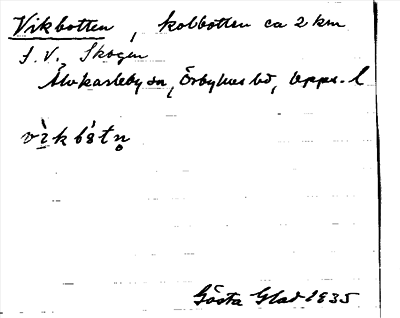 Vikbotten, kolbotten ca 2 km
S.V. Skogen
Älvkarleby sn, Örbyhus hd, Upps. l
vìkbåtn̥
Gösta Glad 1935